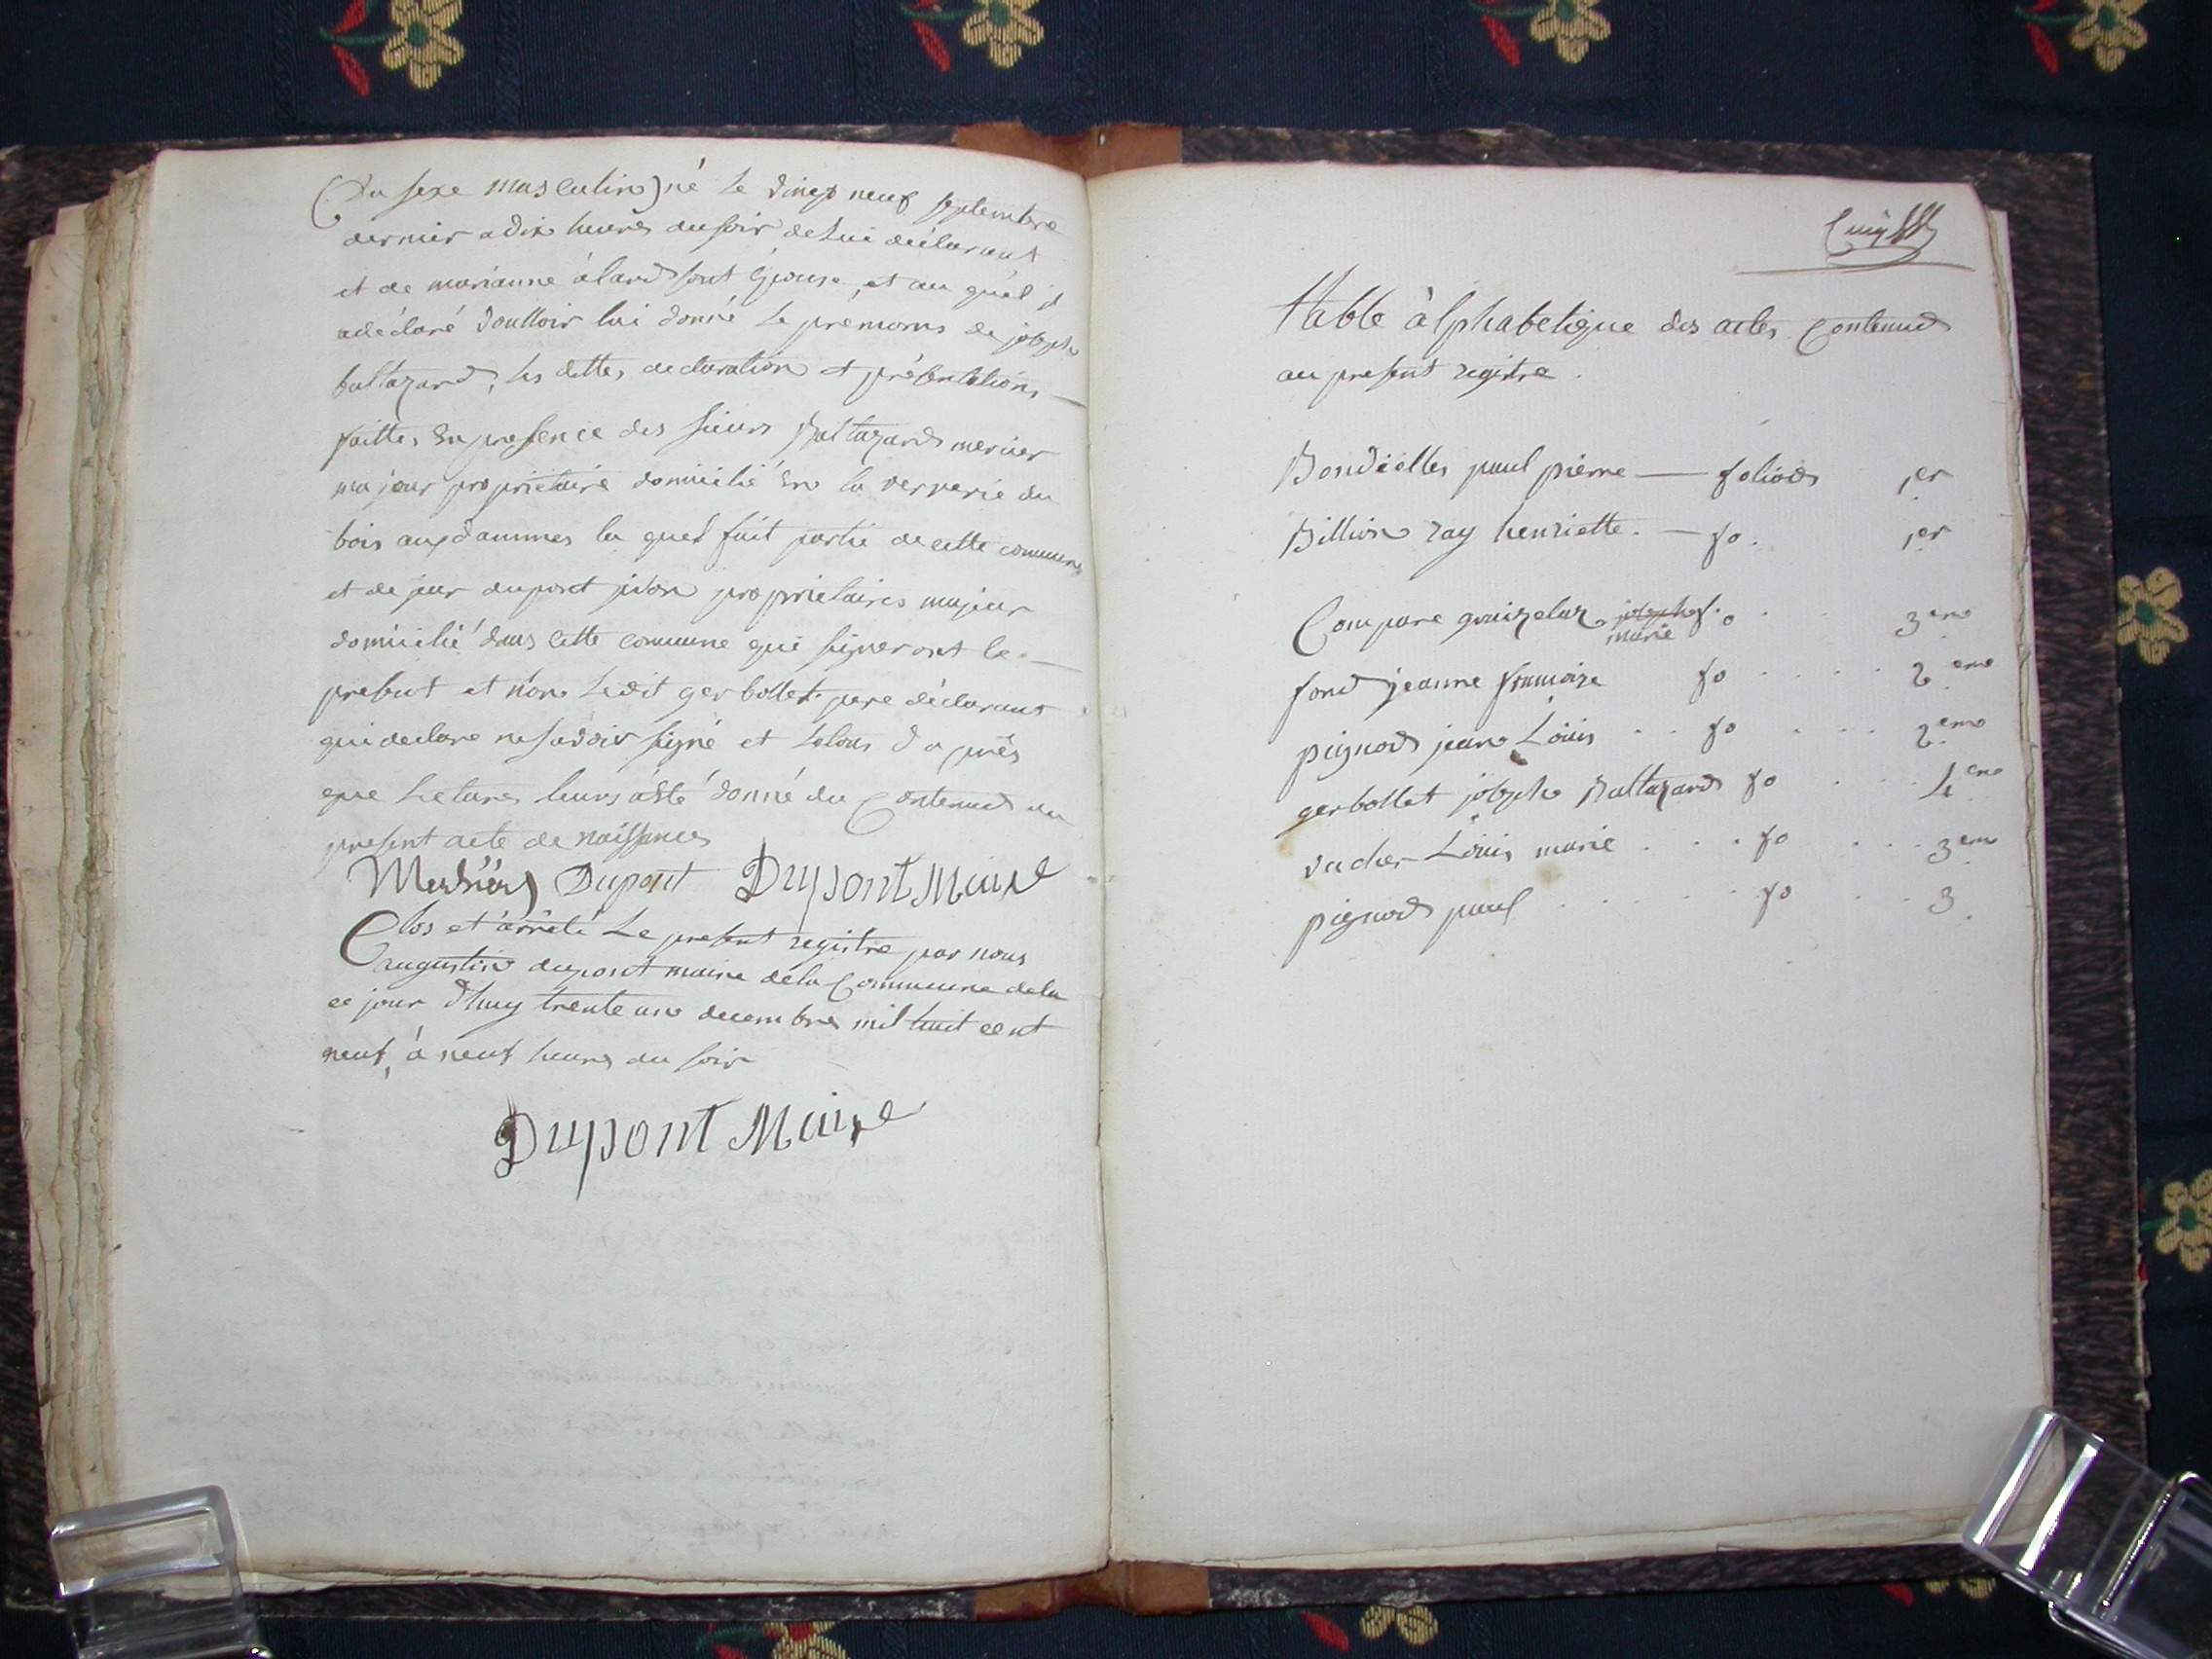 (Du sexe masculin) né le vingt neuf septembre
dernier a dix heures du soir de lui déclarant
et de marianne álard sont Epouse, et au quel il
a déclaré voulloir lui donné le premoms de joseph
baltazard, les dittes declaration et présentations
faittes En presence des sieurs Baltazard mercier
majeur propriétaire domicilié En la verrerie du
bois aux dammes la quel fait partie de cette commune
et de dupont propriétaires majeur
domicilié dans cette commune qui signeront le
present et non ledit gerbollet pere déclarant
qui declare ne savoir signé et d'après
que lecture leurs a été donné du Contenud au
present acte de naissances
Dupont Dupont Maire
Clos et arrêté Le present registre par nous
augustin dupont maire de la Commune de la
ce jour d'huy trente un decembre mil huit cent
neuf, à neuf heures du soir
Dupont Maire
Table àlphabetique des actes Contenud
au present registre.
paul pierre — folios 1er
Billion ray henriette. — fo. 1er
Compare marie fo 3eme
fond jeanne francoize fo 2eme
pignod jean Louis fo 2eme
gerbollet joseph Baltazard fo 4eme
vucher Louis marie fo 3eme
pignod paul fo 3.